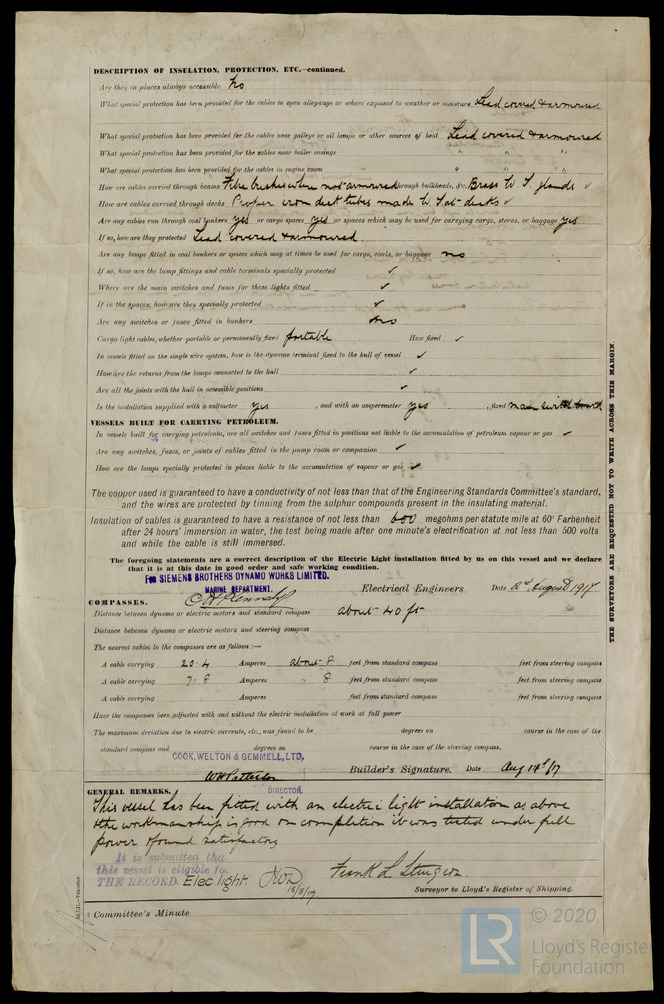 DESCRIPTION OF INSULATION, PROTECTION, ETC.—continued.
Are they in places always accessible No
What special protection has been provided for the cables in open alleyways or where exposed to weather or moisture Lead covered & armoured
What special protection has been provided for the cables near galleys or oil lamps or other sources of heat Lead covered & armoured
What special protection has been provided for the cables near boiler casings " " "
What special protection has been provided for the cables in engine room " " "
How are cables carried through beams Fibre bushes where not armoured through bulkheads, &c. Brass W. T. glands ✓
How are cables carried through decks Proper iron deck tubes made W. T. at decks ✓
Are any cables run through coal bunkers yes or cargo spaces yes or spaces which may be used for carrying cargo, stores, or baggage yes
If so, how are they protected Lead covered & armoured
Are any lamps fitted in coal bunkers or spaces which may at times be used for cargo, coals, or baggage no
If so, how are the lamp fittings and cable terminals specially protected ✓
Where are the main switches and fuses for these lights fitted ✓
If in the spaces, how are they specially protected ✓
Are any switches or fuses fitted in bunkers no
Cargo light cables, whether portable or permanently fixed portable How fixed ✓
In vessels fitted on the single wire system, how is the dynamo terminal fixed to the hull of vessel ✓
How are the returns from the lamps connected to the hull ✓
Are all the joints with the hull in accessible positions ✓
Is the installation supplied with a voltmeter yes , and with an amperemeter yes , fixed main switch board
VESSELS BUILT FOR CARRYING PETROLEUM.
In vessels built for carrying petroleum, are all switches and fuses fitted in positions not liable to the accumulation of petroleum vapour or gas ✓
Are any switches, fuses, or joints of cables fitted in the pump room or companion ✓
How are the lamps specially protected in places liable to the accumulation of vapour or gas ✓
The copper used is guaranteed to have a conductivity of not less than that of the Engineering Standards Committee's standard,
and the wires are protected by tinning from the sulphur compounds present in the insulating material.
Insulation of cables is guaranteed to have a resistance of not less than 600 megohms per statute mile at 60° Farhenheit
after 24 hours' immersion in water, the test being made after one minute's electrification at not less than 500 volts
and while the cable is still immersed.
The foregoing statements are a correct description of the Electric Light installation fitted by us on this vessel and we declare
that it is at this date in good order and safe working condition.
FOR SIEMENS BROTHERS DYNAMO WORKS LIMITED.
MARINE DEPARTMENT.
Electrical Engineers Date 2nd August 1917
COMPASSES.
Distance between dynamo or electric motors and standard compass about 40 ft
Distance between dynamo or electric motors and steering compass
The nearest cables to the compasses are as follows:—
A cable carrying 20.4 Amperes about 8 feet from standard compass feet from steering compass
A cable carrying 7.8 Amperes " 8 feet from standard compass feet from steering compass
A cable carrying Amperes feet from standard compass feet from steering compass
Have the compasses been adjusted with and without the electric installation at work at full power
The maximum deviation due to electric currents, etc., was found to be degrees on course in the case of the
standard compass and degrees on course in the case of the steering compass.
COOK, WELTON & GEMMELL, LTD,
Builder's Signature. Date Aug 14th/17
DIRECTOR.
GENERAL REMARKS.
This vessel has been fitted with an electric light installation as above
the workmanship is good on completion it was tested under full
power & found satisfactory
It is submitted that
this vessel is eligible for
THE RECORD. Elec. light.
18/8/17
Frank L Sturgeon.
Surveyor to Lloyd's Register of Shipping.
Committee's Minute
THE SURVEYORS ARE REQUESTED NOT TO WRITE ACROSS THIS MARGIN.
LR
© 2020
Lloyd's Register
Foundation